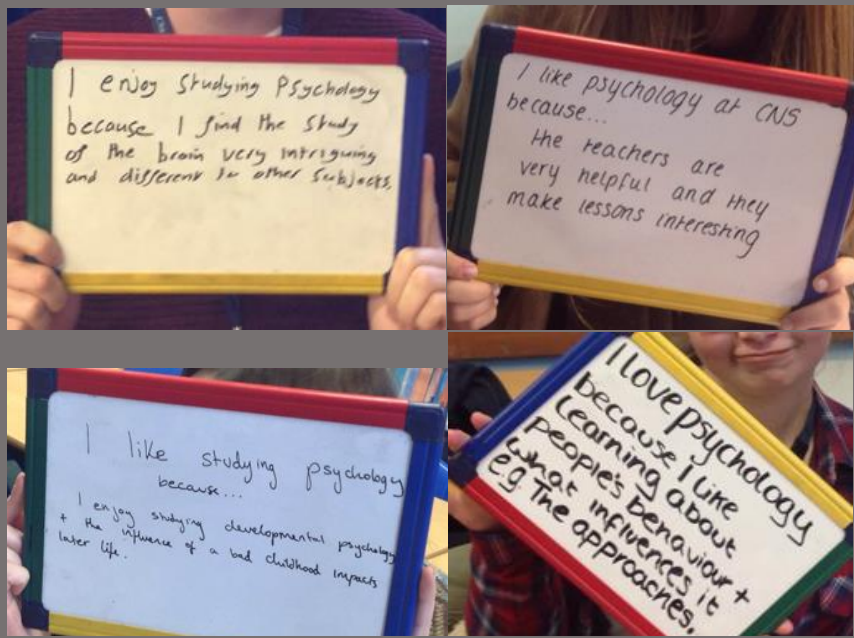 I enjoy studying Psychology
because I find the study
of the brain very intriguing
and different to other subjects.
I like psychology at CNS
because...
the teachers are
very helpful and they
make lessons interesting
I like studying psychology
because...
I enjoy studying developmental psychology
+ the influence of a bad childhood impacts
later life.
I love psychology
because I like
learning about
people's behaviour +
what influences it
eg The approaches.